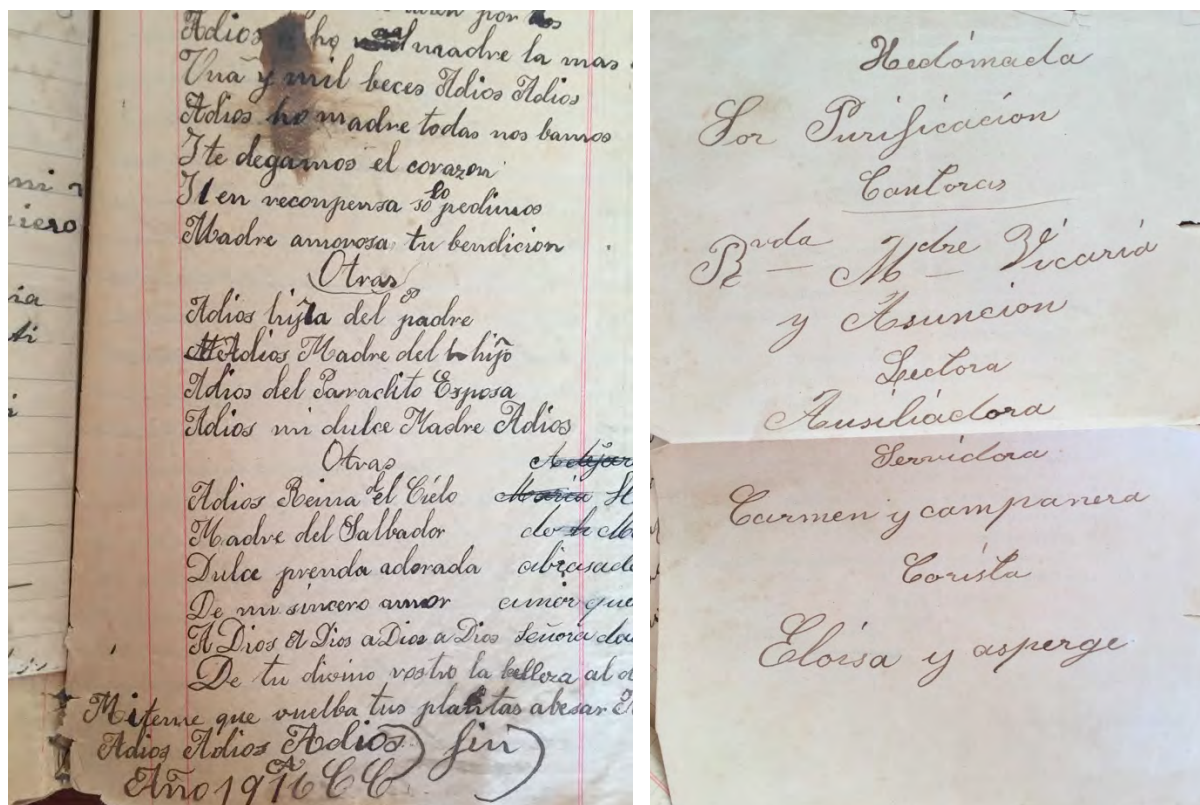 por
Adios ho madre la mas
Una y mil beces Adios Adios
Adios ho madre todas nos bamos
I te degamos el corazon
I en reconpensa solo pedimos
Madre amorosa tu bendicion
Otras
Adios hija del padre
Adios Madre del hijo
Adios del Paraclito Esposa
Adios mi dulce Madre Adios
Otras
Adios Reina del Cielo
Madre del Salbador
Dulce prenda adorada
De mi sincero amor
A Dios A Dios a Dios a Dios
De tu divino rostro la bellera al
Miteme que vuelba tus plantas abesar
Adios Adios Adios fin
Año 1916 C C
niero
Maria
abrasada
amor que
Señora
Hedómada
Sor Purificación
Cantoras
Rvda Mdre Vicaria
y Asuncion
Lectora
Auxiliadora
Servidora
Carmen y companera
Corista
Eloisa y asperge